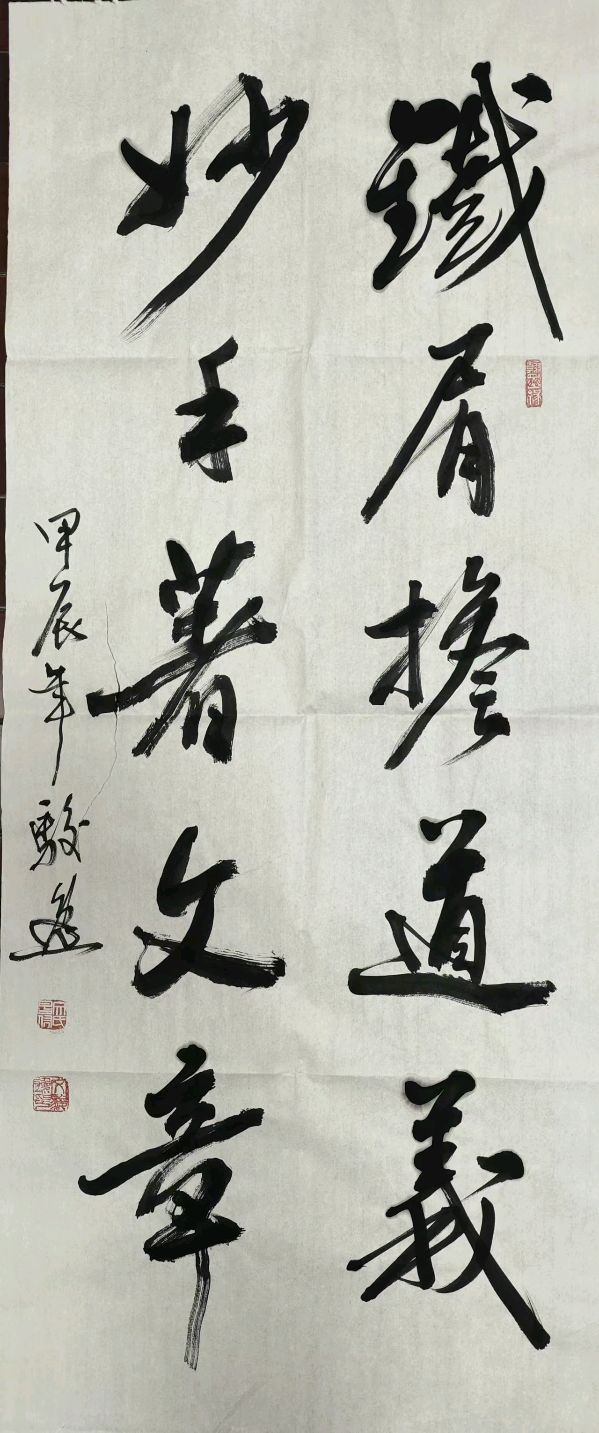 鐵肩擔道義
妙手著文章
甲辰年駿逸